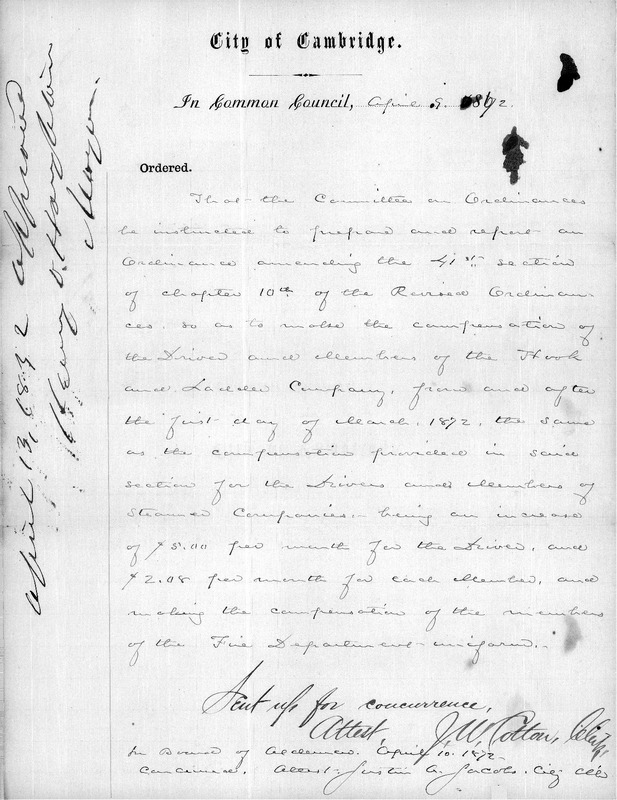 City of Cambridge.
In Common Council, April 9. 1872.
Ordered.
That the Committee on Ordinances
be instructed to prepare and report an
Ordinance amending the 41st section
of chapter 10th of the Revised Ordinan-
ces. so as to make the compensation of
the Driver and Members of the Hook
and Ladder Company, from and after
the first day of March, 1872, the same
as the compensation provided in said
section for the Drivers and Members of
Steamer Companies,- being an increase
of $5.00 per month for the Driver, and
$2.08 per month for each Member, and
making the compensation of the members
of the Fire Department uniform.-
Sent up for concurrence,
Attest, J W Cotton, Clerk,
In Board of Aldermen. April 10. 1872-
Concurred. Attest- Justin A. Jacobs. City Clk
April 13, 1872 approved
Henry O. Houghton
Mayor.